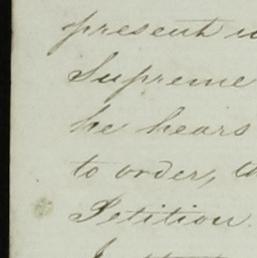 present
Supreme
he hears
to order,
Petition.